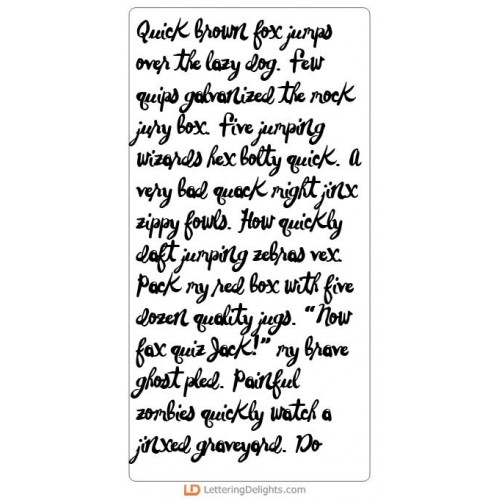 Quick brown fox jumps
over the lazy dog. Few
quips galvanized the mock
jury box. Five jumping
wizards hex bolty quick. A
very bad quack might jinx
zippy fowls. How quickly
daft jumping zebras vex.
Pack my red box with five
dozen quality jugs. “Now
fax quiz Jack!” my brave
ghost pled. Painful
zombies quickly watch a
jinxed graveyard. Do
LD LetteringDelights.com